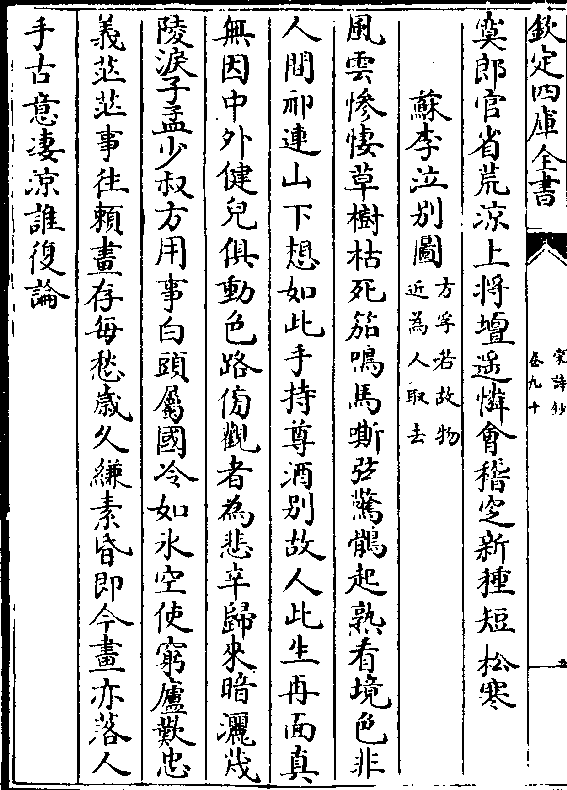 欽定四庫全書
宋詩鈔
卷九十
奠郎官省荒凉上將壇遥憐會稽空新種短松寒
蘇李泣别圖方孚若故物
近為人取去
風雲慘悽草樹枯死笳鳴馬嘶弦驚鶻起熟看境色非
人間祁連山下想如此手持尊酒别故人此生再面真
無因中外健兒俱動色路傍觀者為悲辛歸來暗灑茂
陵淚子孟少叔方用事白頭屬國冷如氷空使窮廬歎忠
義茫茫事往賴畫存每愁歲久縑素昏即今畫亦落人
手古意凄涼誰復論